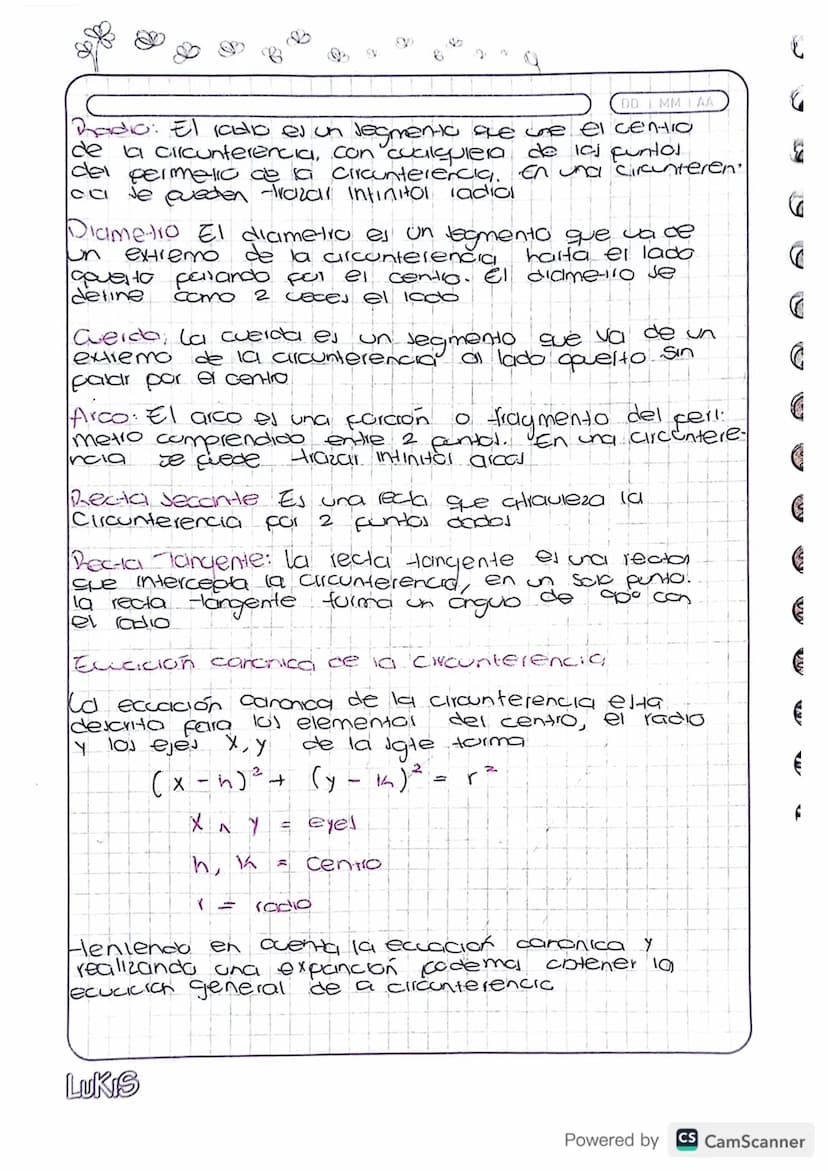 DD | MM | AA
Radio: El radio es un segmento que une el centro
de la circunferencia, con cualquiera de los puntos
del perimetro de la circunferencia. En una circunferen-
cia se pueden trazar infinitos radios
Diametro El diametro es un segmento que va de
un extremo de la circunferencia hasta el lado
opuesto pasando por el centro. El diametro se
define como 2 veces el lado
Cuerda: La cuerda es un segmento que va de un
extremo de la circunferencia al lado opuesto sin
pasar por el centro
Arco: El arco es una porción o fragmento del perí-
metro comprendido entre 2 puntos. En una circunfere-
ncia se puede trazar infinitos arcos
Recta secante Es una recta que atraviesa la
Circunferencia por 2 puntos dados
Recta Tangente: la recta tangente es una recta
que intercepta la circunferencia, en un solo punto.
la recta tangente forma un angulo de 90° con
el radio
Ecuación canonica de la circunferencia
La ecuación canonica de la circunferencia esta
descrita para los elementos del centro, el radio
y los ejes X, y de la sgte forma
(x - h)² + (y - k)² = r²
X ∧ y = eyes
h, k = centro
r = radio
teniendo en cuenta la ecuación canonica y
realizando una expanción podemos obtener la
ecuación general de a circunferencia
LUKIS
Powered by CS CamScanner